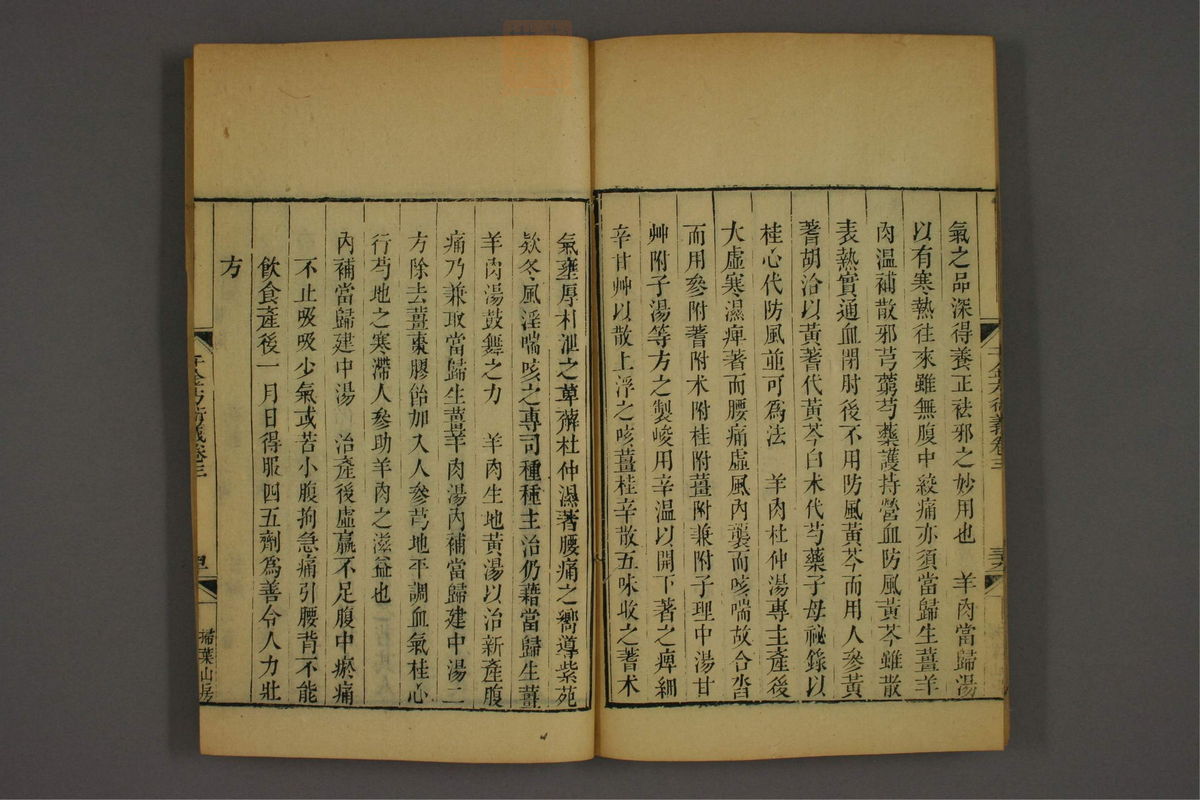 氣之品深得養正祛邪之妙用也　羊肉當歸湯
以有寒熱往來雖無腹中絞痛亦須當歸生薑羊
肉温補散邪芎藭芍藥護持營血防風黃芩雖散
表熱實通血閉肘後不用防風黃芩而用人參黃
蓍胡洽以黃蓍代黃芩白术代芍藥子母祕錄以
桂心代防風並可爲法　羊肉杜仲湯專主產後
大虛寒濕痺著而腰痛虛風內襲而咳喘故合沓
而用參附蓍附术附桂附薑附兼附子理中湯甘
艸附子湯等方之製峻用辛温以開下著之痺細
辛甘艸以散上浮之咳薑桂辛散五味收之蓍术
氣壅厚朴泄之萆薢杜仲濕著腰痛之嚮導紫苑
欵冬風淫喘咳之專司種種主治仍藉當歸生薑
羊肉湯鼓舞之力　羊肉生地黃湯以治新產腹
痛乃兼取當歸生薑羊肉湯內補當歸建中湯二
方除去薑棗膠飴加入人參芎地平調血氣桂心
行芍地之寒滯人參助羊肉之滋益也
內補當歸建中湯　治產後虛羸不足腹中瘀痛
不止吸吸少氣或苦小腹拘急痛引腰背不能
飲食產後一月日得服四五劑爲善令人力壯
方
千金方衍義卷三
掃葉山房